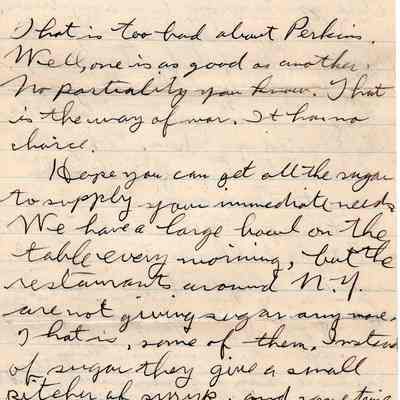 That is too bad about Perkins.
Well, one is as good as another.
No partiality you know. That
is the way of war. It has no
choice.
Hope you can get all the sugar
to supply your immediate needs.
We have a large bowl on the
table every morning, but the
restaurants around N.Y.
are not giving sugar any more.
That is, some of them. Instead
of sugar they give a small
pitcher of syrup, and sometime